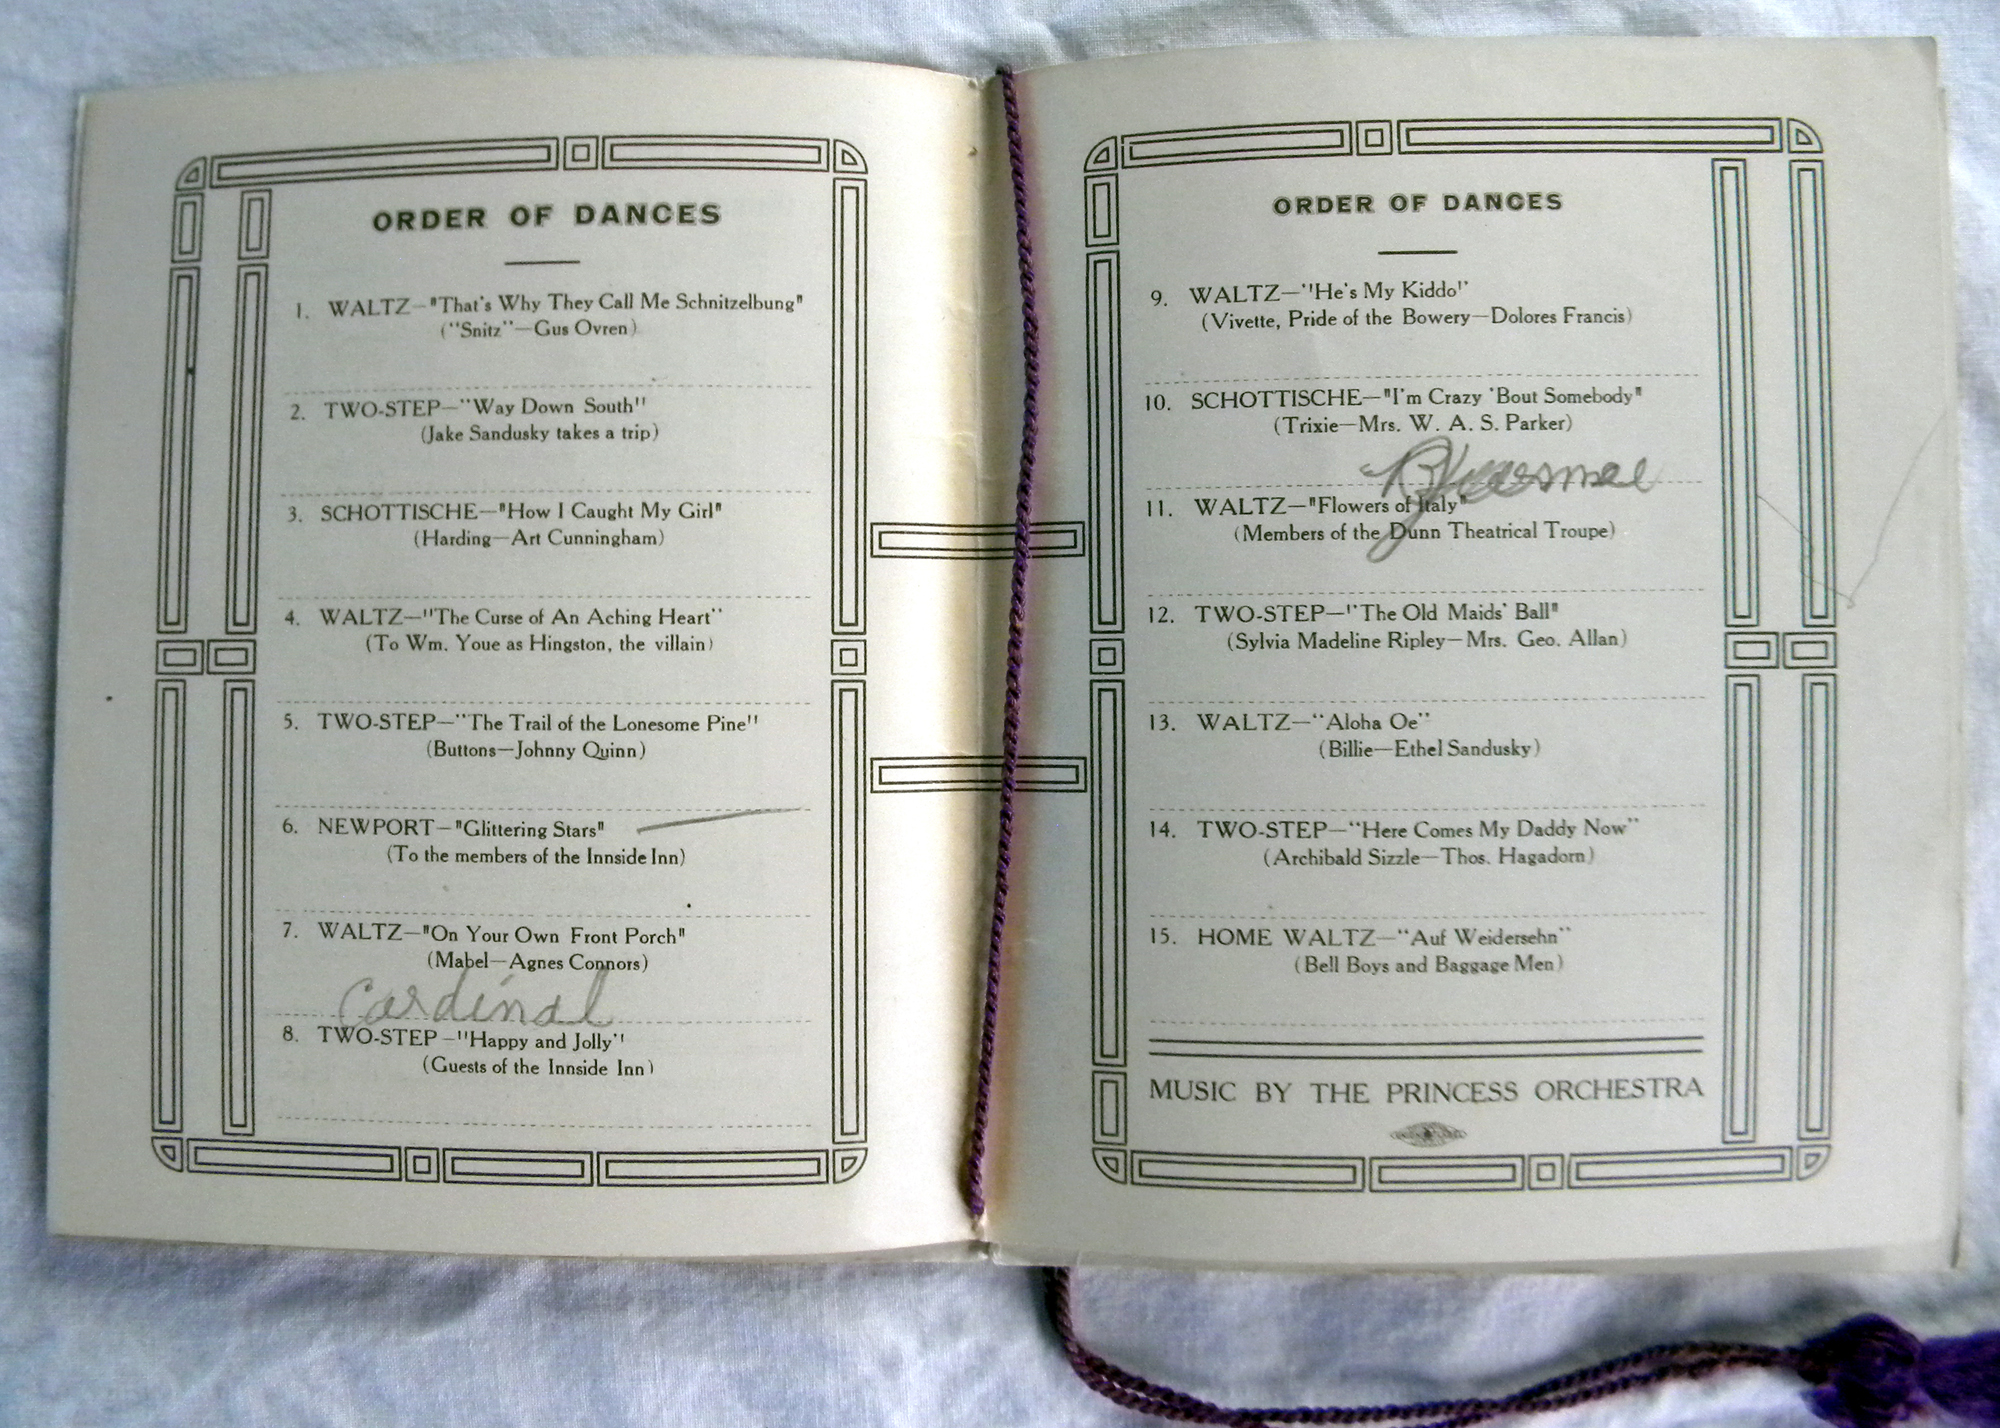 ORDER OF DANCES
1. WALTZ—"That's Why They Call Me Schnitzelbung"
("Snitz"—Gus Ovren)
2. TWO-STEP—"Way Down South"
(Jake Sandusky takes a trip)
3. SCHOTTISCHE—"How I Caught My Girl"
(Harding—Art Cunningham)
4. WALTZ—"The Curse of An Aching Heart"
(To Wm. Youe as Hingston, the villain)
5. TWO-STEP—"The Trail of the Lonesome Pine"
(Buttons—Johnny Quinn)
6. NEWPORT—"Glittering Stars"
(To the members of the Innside Inn)
7. WALTZ—"On Your Own Front Porch"
(Mabel—Agnes Connors)
Cardinal
8. TWO-STEP—"Happy and Jolly"
(Guests of the Innside Inn)
ORDER OF DANCES
9. WALTZ—"He's My Kiddo"
(Vivette, Pride of the Bowery—Dolores Francis)
10. SCHOTTISCHE—"I'm Crazy 'Bout Somebody"
(Trixie—Mrs. W. A. S. Parker)
11. WALTZ—"Flowers of Italy"
(Members of the Dunn Theatrical Troupe)
12. TWO-STEP—"The Old Maids' Ball"
(Sylvia Madeline Ripley—Mrs. Geo. Allan)
13. WALTZ—"Aloha Oe"
(Billie—Ethel Sandusky)
14. TWO-STEP—"Here Comes My Daddy Now"
(Archibald Sizzle—Thos. Hagadorn)
15. HOME WALTZ—"Auf Weidersehn"
(Bell Boys and Baggage Men)
MUSIC BY THE PRINCESS ORCHESTRA